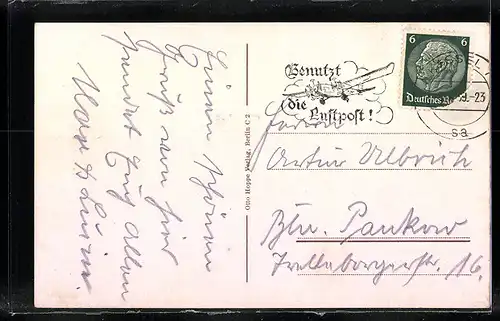 Einen schönen
Gruß von hier
sendet Euch allen
Max & Luise.
Otto Hoppe Verlag, Berlin C 2
Benutzt
die
Luftpost!
6
6
Deutsches Re
9.-23
sa
Artur Ulbrich
Bln. Pankow
Trelleborgerstr. 16.